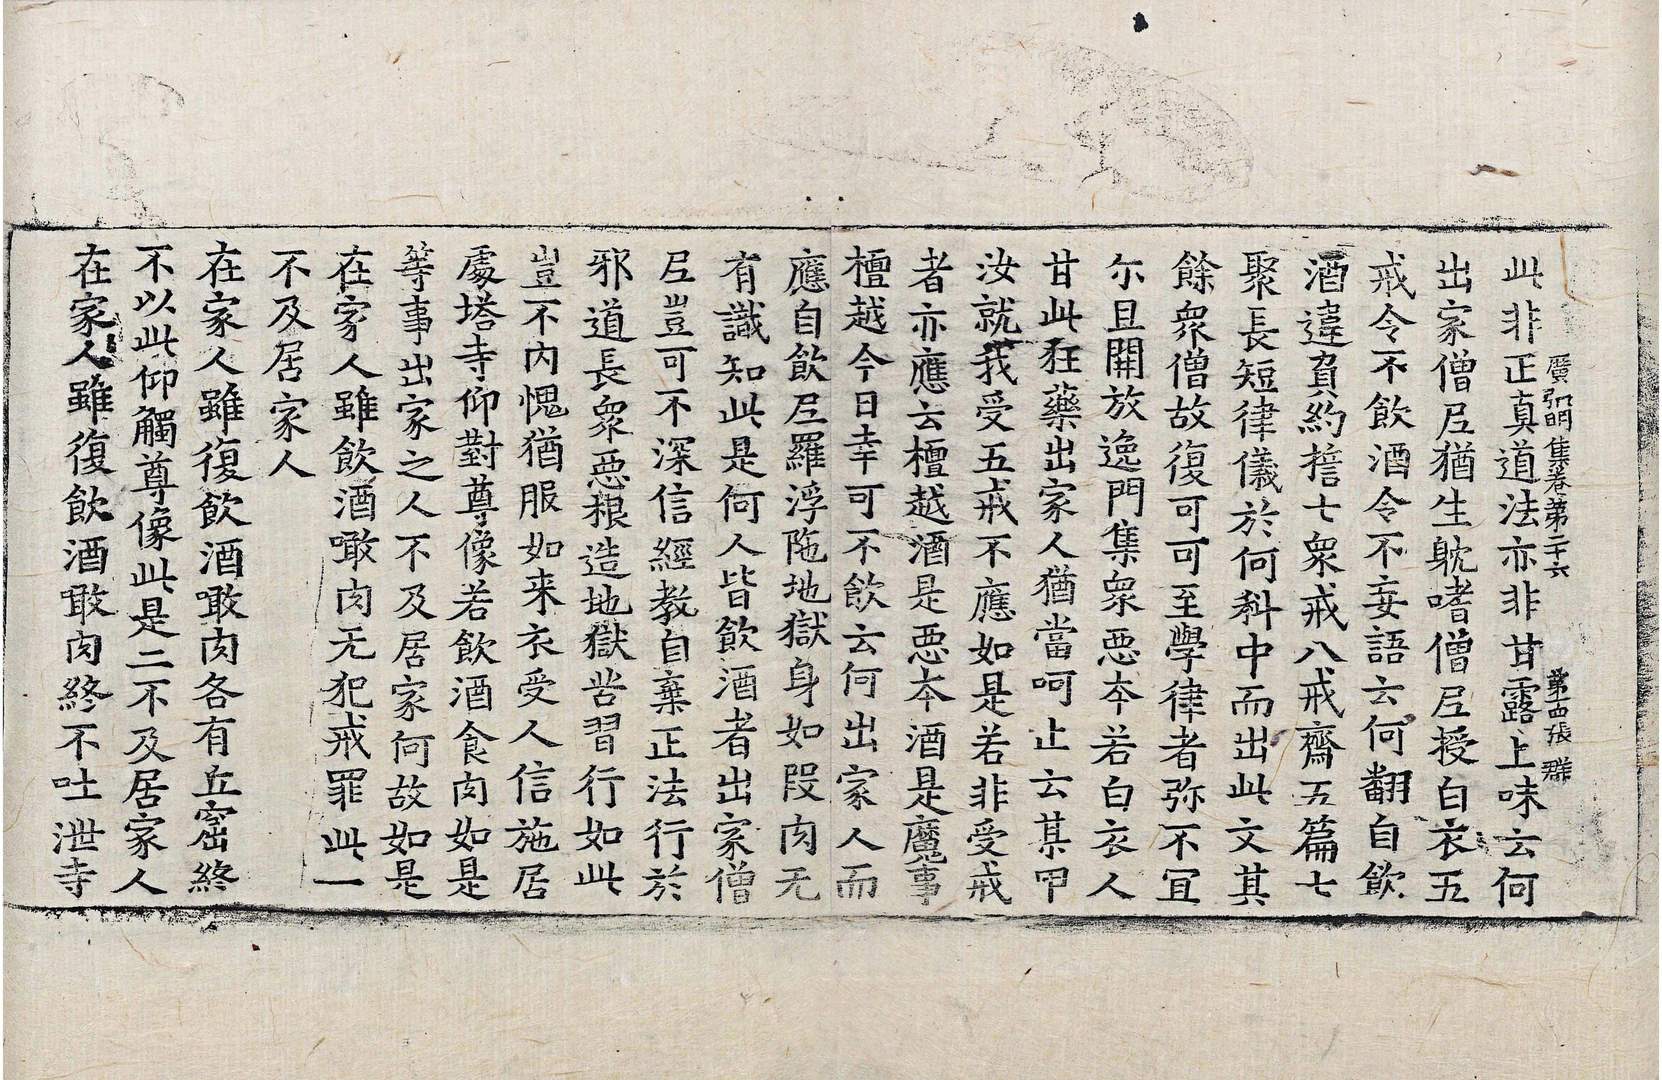 廣弘明集卷第二十六　第十四張　群
此非正真道法亦非甘露上味云何
出家僧尼猶生躭嗜僧尼授白衣五
戒令不飲酒令不妄語云何翻自飲
酒違負約誓七衆戒八戒齋五篇七
聚長短律儀於何科中而出此文其
餘衆僧故復可可至學律者弥不冝
尒且開放逸門集衆惡夲若白衣人
甘此狂藥出家人猶當呵止云某甲
汝就我受五戒不應如是若非受戒
者亦應云檀越酒是惡夲酒是魔事
檀越今日幸可不飲云何出家人而
應自飲尼羅浮陁地獄身如段肉无
有識知此是何人皆飲酒者出家僧
尼豈可不深信經教自棄正法行於
邪道長衆惡根造地獄苦習行如此
豈不内愧猶服如来衣受人信施居
處塔寺仰對尊像若飲酒食肉如是
等事出家之人不及居家何故如是
在家人雖飲酒噉肉无犯戒罪此一
不及居家人
在家人雖復飲酒噉肉各有丘窟終
不以此仰觸尊像此是二不及居家人
在家人雖復飲酒噉肉終不吐泄寺